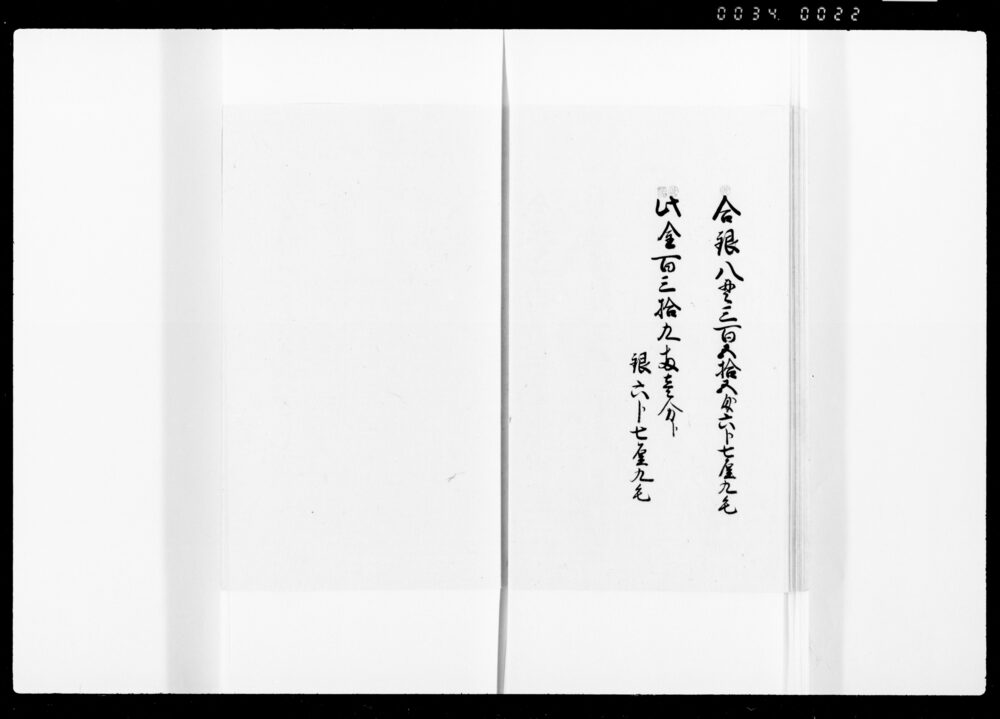 0034 0022
合銀八貫三百五拾五匁六分七厘九毛
此金百三拾九両壱分ト
銀六分七厘九毛